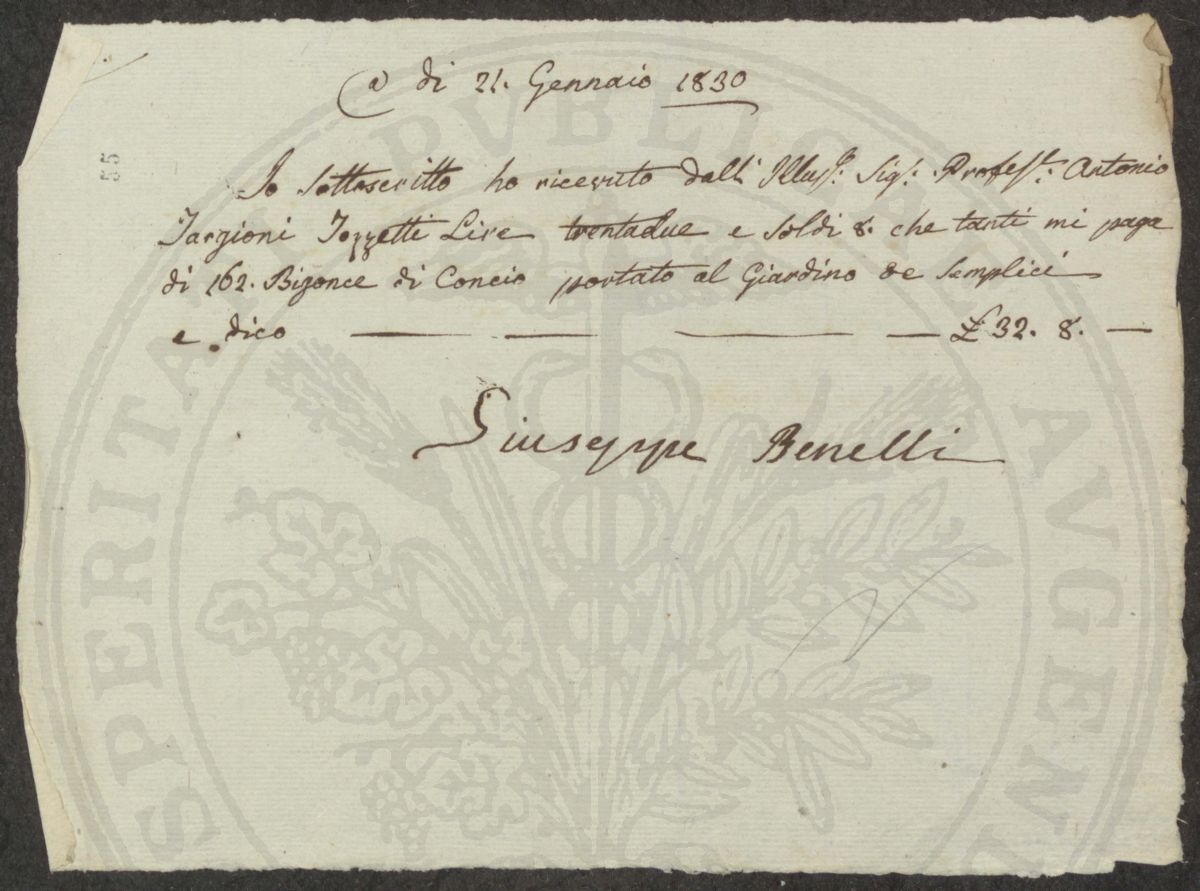 a di 21. Gennaio 1830
55
Io sottoscritto ho ricevuto dall' Illuss: Sig: Profess: Antonio
Targioni Tozzetti Lire trentadue e soldi 8. che tanti mi paga
di 162. Bigonce di Concio portato al Giardino de Semplici
e dico — — — — £ 32. 8. —
Giuseppe Benelli
SPERITATI PVBLICAE AVGEN